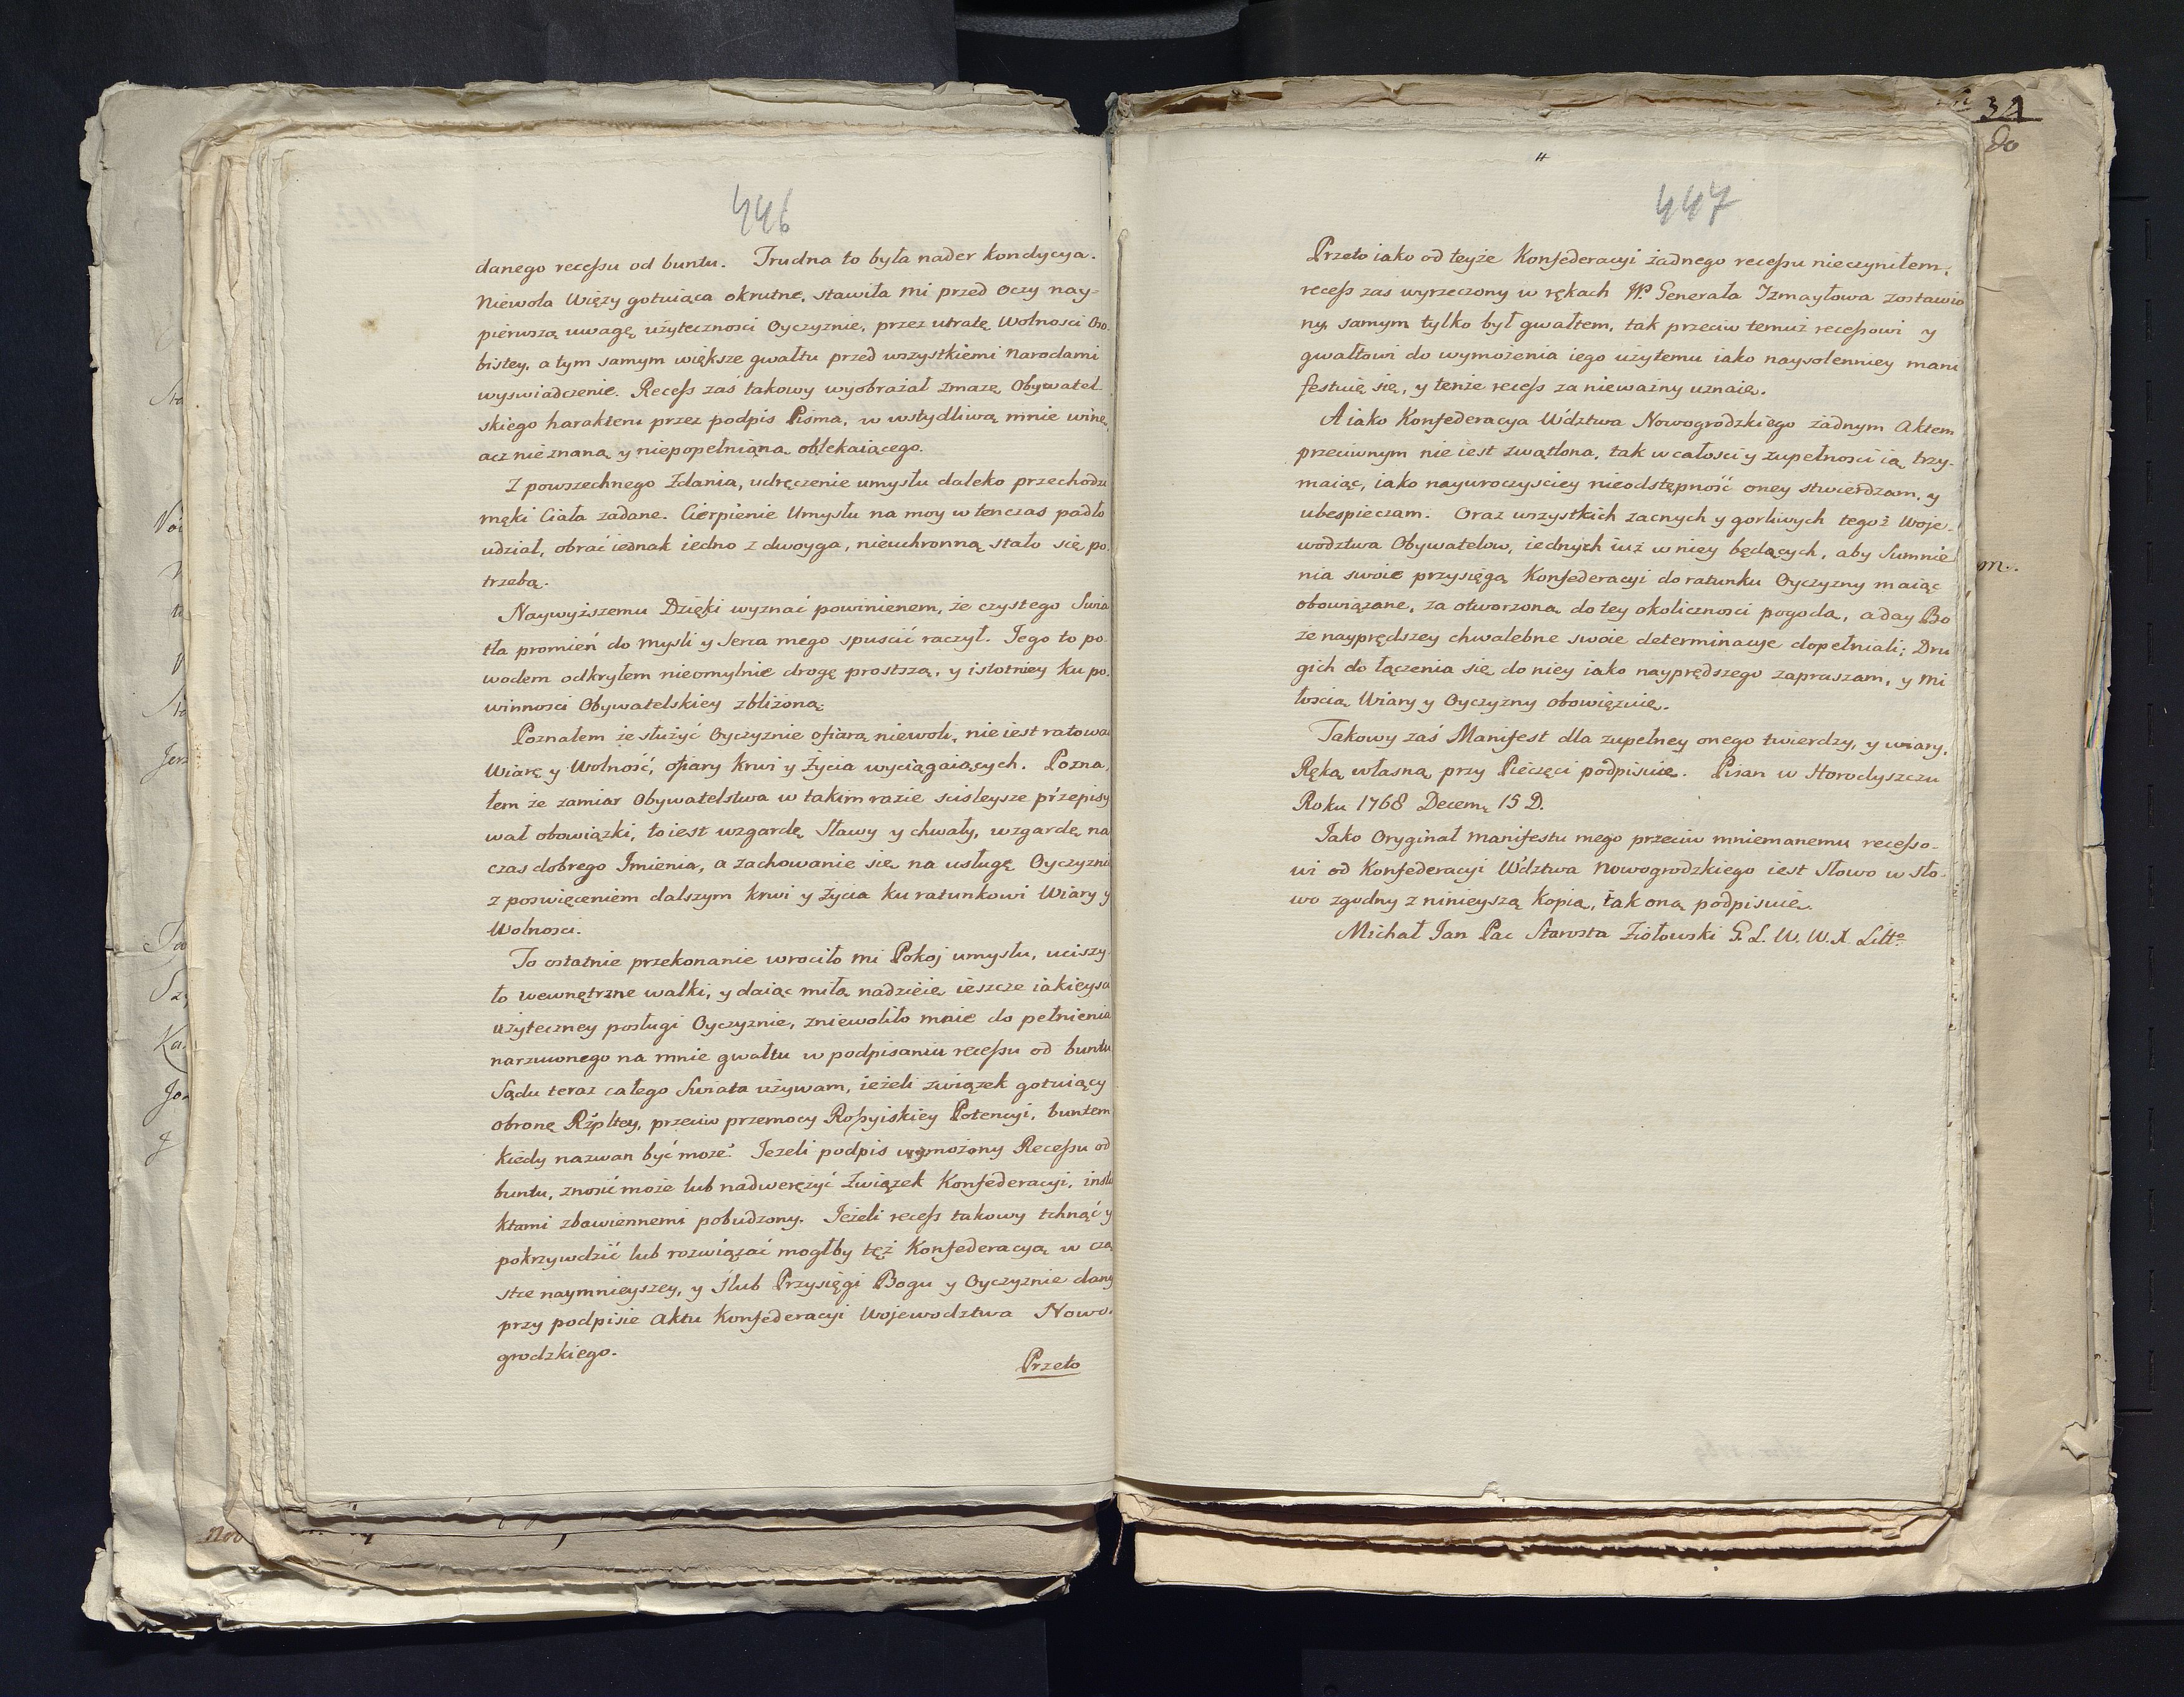 446
danego recessu od buntu. Trudna to była nader kondycya.
Niewola Więzy gotuiąca okrutne, stawiła mi przed oczy nay-
pierwszą uwagę użytecznosci Oyczyznie, przez utratę Wolnosci Oso-
bistey, a tym samym większe gwałtu przed wszystkiemi Narodami
wyswiadczenie. Recess zaś takowy wyobrażał zmazę Obywatel-
skiego harakteru przez podpis Pisma, w wstydliwą mnie winę,
acz nieznaną y niepopełnianą oblekaiącego.
Z powszechnego Zdania, udręczenie umysłu daleko przechodzi
męki Ciała zadane. Cierpienie Umysłu na moy w tenczas padło
udział, obrać iednak iedno z dwoyga, nieuchronną stało się po-
trzebą.
Naywyższemu Dzięki wyznać powinienem, że czystego Swia
tła promień do mysli y Serca mego spuscić raczył. Jego to po-
wodem odkryłem nieomylnie drogę prostszą, y istotniey ku po-
winnosci Obywatelskiey zbliżoną.
Poznałem że służyć Oyczyznie ofiarą niewoli, nie iest ratować
Wiarę y Wolność, ofiary krwi y życia wyciągaiących. Pozna-
łem że zamiar Obywatelstwa w takim razie scisleysze przepisy
wał obowiązki, to iest wzgardę Sławy y chwały, wzgardę na
czas dobrego Imienia, a zachowanie się na usługę Oyczyzni
z poswięceniem dalszym krwi y życia ku ratunkowi Wiary y
Wolnosci.
To ostatnie przekonanie wrociło mi Pokoj umysłu, uciszy-
ło wewnętrzne walki, y daiąc miłą nadzieię ieszcze iakieysa
użyteczney posługi Oyczyznie, zniewoliło mnie do pełnienia
narzuconego na mnie gwałtu w podpisaniu recessu od buntu
Sądu teraz całego Swiata używam, ieżeli związek gotuiący
obronę Rzpltey, przeciw przemocy Rossyiskiey Potencyi, buntem
kiedy nazwan być może? Jeżeli podpis wymożony Recessu od
buntu, znosić może lub nadwerężyć Związek Konfederacyi, instu
ktami zbawiennemi pobudzony. Jeżeli recess takowy tchnąć y
pokrzywdzić lub rozwiązać mogłby też Konfederacyą w czą
stce naymnieyszey, y Ślub Przysięgi Bogu y Oyczyznie dany
przy podpisie Aktu Konfederacyi Wojewodztwa Nowo-
grodzkiego.
Przeto
447
Przeto iako od teyże Konfederacyi żadnego recessu nieczyniłem,
recess zas wyrzeczony w rękach JP. Generała Izmayłowa zostawio
ny, samym tylko był gwałtem, tak przeciw temuż recessowi y
gwałtowi do wymożenia iego użytemu iako naysolenniey mani
festuię się, y tenże recess za nieważny uznaię.
A iako Konfederacya Wdztwa Nowogrodzkiego żadnym Aktem
przeciwnym nie iest zwątlona, tak w całosci y zupełnosci ią trzy-
maiąc, iako nayuroczysciey nieodstępność oney stwierdzam, y
ubespieczam. Oraz wszystkich zacnych y gorliwych tegoż Woje-
wodztwa Obywatelow, iednych iuż w niey będących, aby Sumnie
nia swoie przysięgą Konfederacyi do ratunku Oyczyzny maiąc
obowiązane, za otworzoną do tey okolicznosci pogodą, a day Bo
że nayprędszey chwalebne swoie determinacye dopełniali; Dru
gich do łączenia się do niey iako nayprędszego zapraszam, y mi
łoscią Wiary y Oyczyzny obowięzuię.
Takowy zaś Manifest dla zupełney onego twierdzy, y wiary,
Ręką własną przy Pieczęci podpisuię. Pisan w Horodyszczu
Roku 1768 Decem. 15 D.
Jako Oryginał manifestu mego przeciw mniemanemu recesso-
wi od Konfederacyi Wdztwa Nowogrodzkiego iest Słowo w Sło-
wo zgodny z ninieyszą Kopią, tak oną podpisuię.
Michał Jan Pac Starosta Ziołowski G. L. W. W. X. Litto
34
do